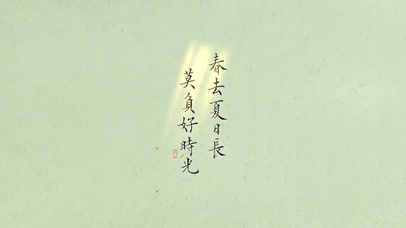 春去夏日長
莫負好時光